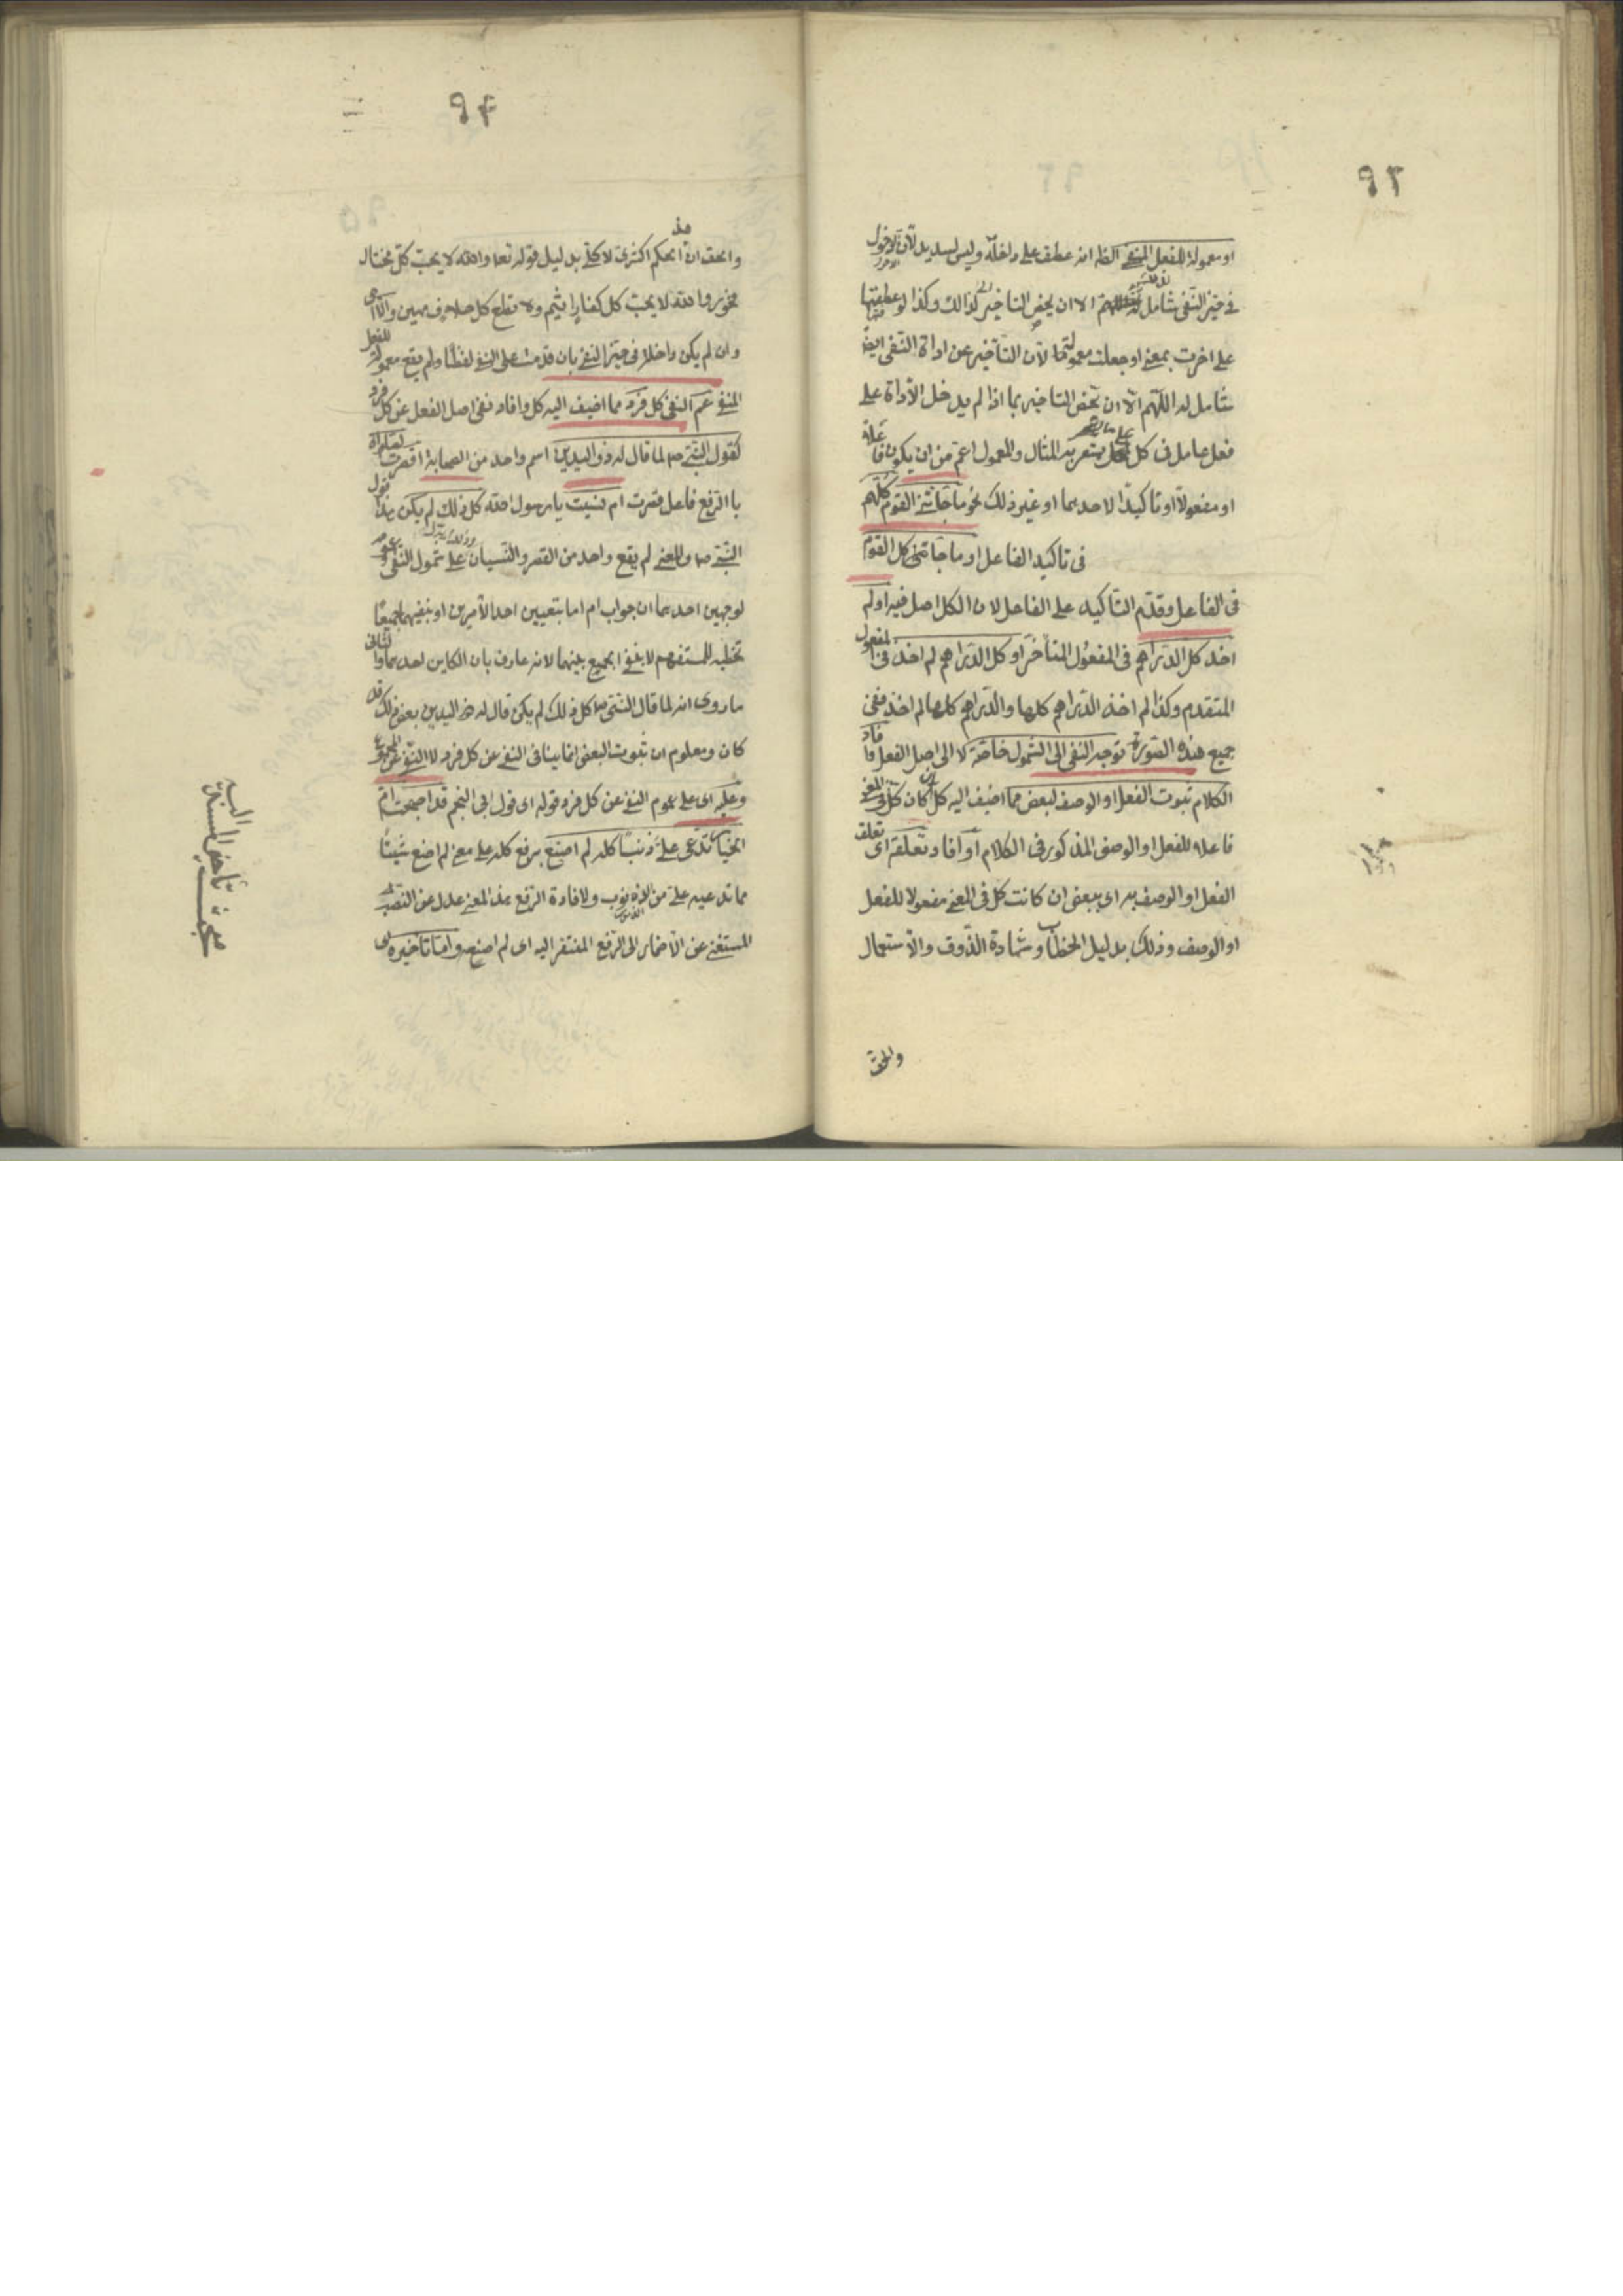 ٩٣
او معمولة للفعل المنفي الظاهر انه عطف على داخلة وليس بسديد لان الدخول
في حيز النفي شامل لذلك اللهم الا ان يخص التاخير كذالك وكذا لو عطفتها
على اخرت بمعنى او جعلت معمولة لان التأخير عن اداة النفى ايضا
شامل له اللهم الا ان يخص التاخير بما اذا لم يدخل الاداة على
فعل عامل في كل على ما يشعر به المثال والمعمول اعم من ان يكون فاعلا
او مفعولا او تاكيدا لاحدهما او غير ذلك نحو ما جائني القوم كلهم
فى تاكيد الفاعل او ما جائنى كل القوم
فى الفاعل وقدم التاكيد على الفاعل لان الكل اصل فيه او لم
اخذ كل الدراهم فى المفعول المتأخر او كل الدراهم لم اخذ فى المفعول
المتقدم وكذا لم اخذ الدراهم كلها والدراهم كلها لم اخذ ففى
جميع هذه الصورة توجه النفى الى الشمول خاصة لا الى اصل الفعل وافاد
الكلام ثبوت الفعل او الوصف لبعض مما اضيف اليه كل ان كان كل فى المعنى
فاعلا للفعل او الوصف المذكور فى الكلام او افاد تعلقه اى تعلق
الفعل او الوصف به اى ببعض ان كانت كل فى المعنى مفعولا للفعل
او الوصف وذلك بدليل الخطاب وشهادة الذوق والاستعمال
والحق
٩٤
والحق ان هذا الحكم اكثرى لا كلى بدليل قوله تعا والله لا يحب كل مختال
فخور والله لا يحب كل كفار اثيم ولا تطع كل حلاف مهين والا اى
وان لم يكن داخلا فى حيز النفى بان قدمت على النفى لفظا ولم يقع معمولة للفعل
المنفى عم النفى كل فرد مما اضيف اليه كل وافاد نفى اصل الفعل عن كل فرد
كقول النبى ص لما قال له ذو اليدين اسم واحد من الصحابة اقصرت الصلوة
بالرفع فاعل قصرت ام نسيت يا رسول الله كل ذلك لم يكن هذا قول
النبى ص والمعنى لم يقع واحد من القصر والنسيان على شمول النفى وعمومه
لوجهين احدهما ان جواب ام اما بتعيين احد الامرين او بنفيهما جميعا
تخطيه للمستفهم لا بنفى الجميع بينهما لانه عارف بان الكاين احدهما والثانى
ما روى انه لما قال النبى ص كل ذلك لم يكن قال له ذو اليدين بعض ذلك قد
كان ومعلوم ان ثبوت البعض انما ينافى النفى عن كل فرد لا النفى عن المجموع
وعليه اى على عموم النفى عن كل فرد قوله اى قول ابى النجم قد اصبحت ام
الخيار تدعى على ذنبا كله لم اصنع برفع كله على معنى لم اصنع شيئا
مما تدعيه على من الذنوب ولافادة الرفع هذا المعنى عدل عن النصب
المستغنى عن الاضمار الى الرفع المفتقر اليه اى لم اصنعه واما تاخيره اى